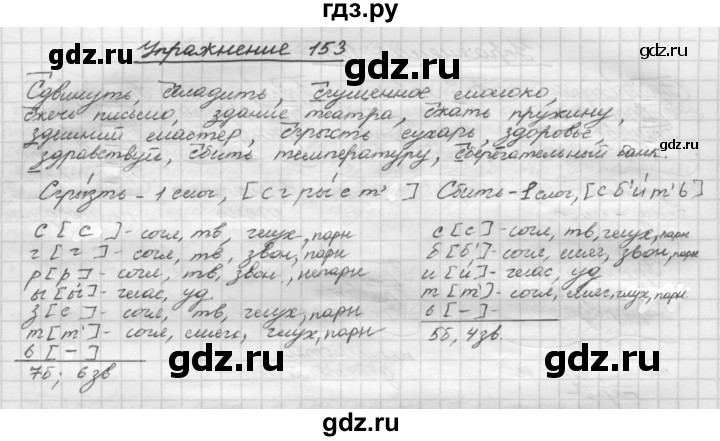 гдз.ру
Упражнение 153
Сдвинуть, сгладить, сгущенное молоко,
сжечь письмо, здание театра, сжать пружину,
здешний мастер, сгрызть сухарь, здоровье,
здравствуй, сбить температуру, сберегательный банк.
Сгрызть - 1 слог, [с г р ы́ с т' ] Сбить - 1 слог, [с б' и́ т' ь]
с [с] - согл, тв, глух, парн с [с] - согл, тв, глух, парн
г [г] - согл, тв, звон, парн б [б'] - согл, мягк, звон, парн
р [р] - согл, тв, звон, непарн и [и́] - глас, уд
ы [ы́] - глас, уд. т [т'] - согл, мягк, глух, парн
з [с] - согл, тв, глух, парн ь [-]
т [т'] - согл, мягк, глух, парн 5б, 4зв.
ь [-]
7б; 6зв
gdz.ru gdz.ru gdz.ru
gdz.ru gdz.ru gdz.ru
gdz.ru gdz.ru gdz.ru
gdz.ru gdz.ru gdz.ru